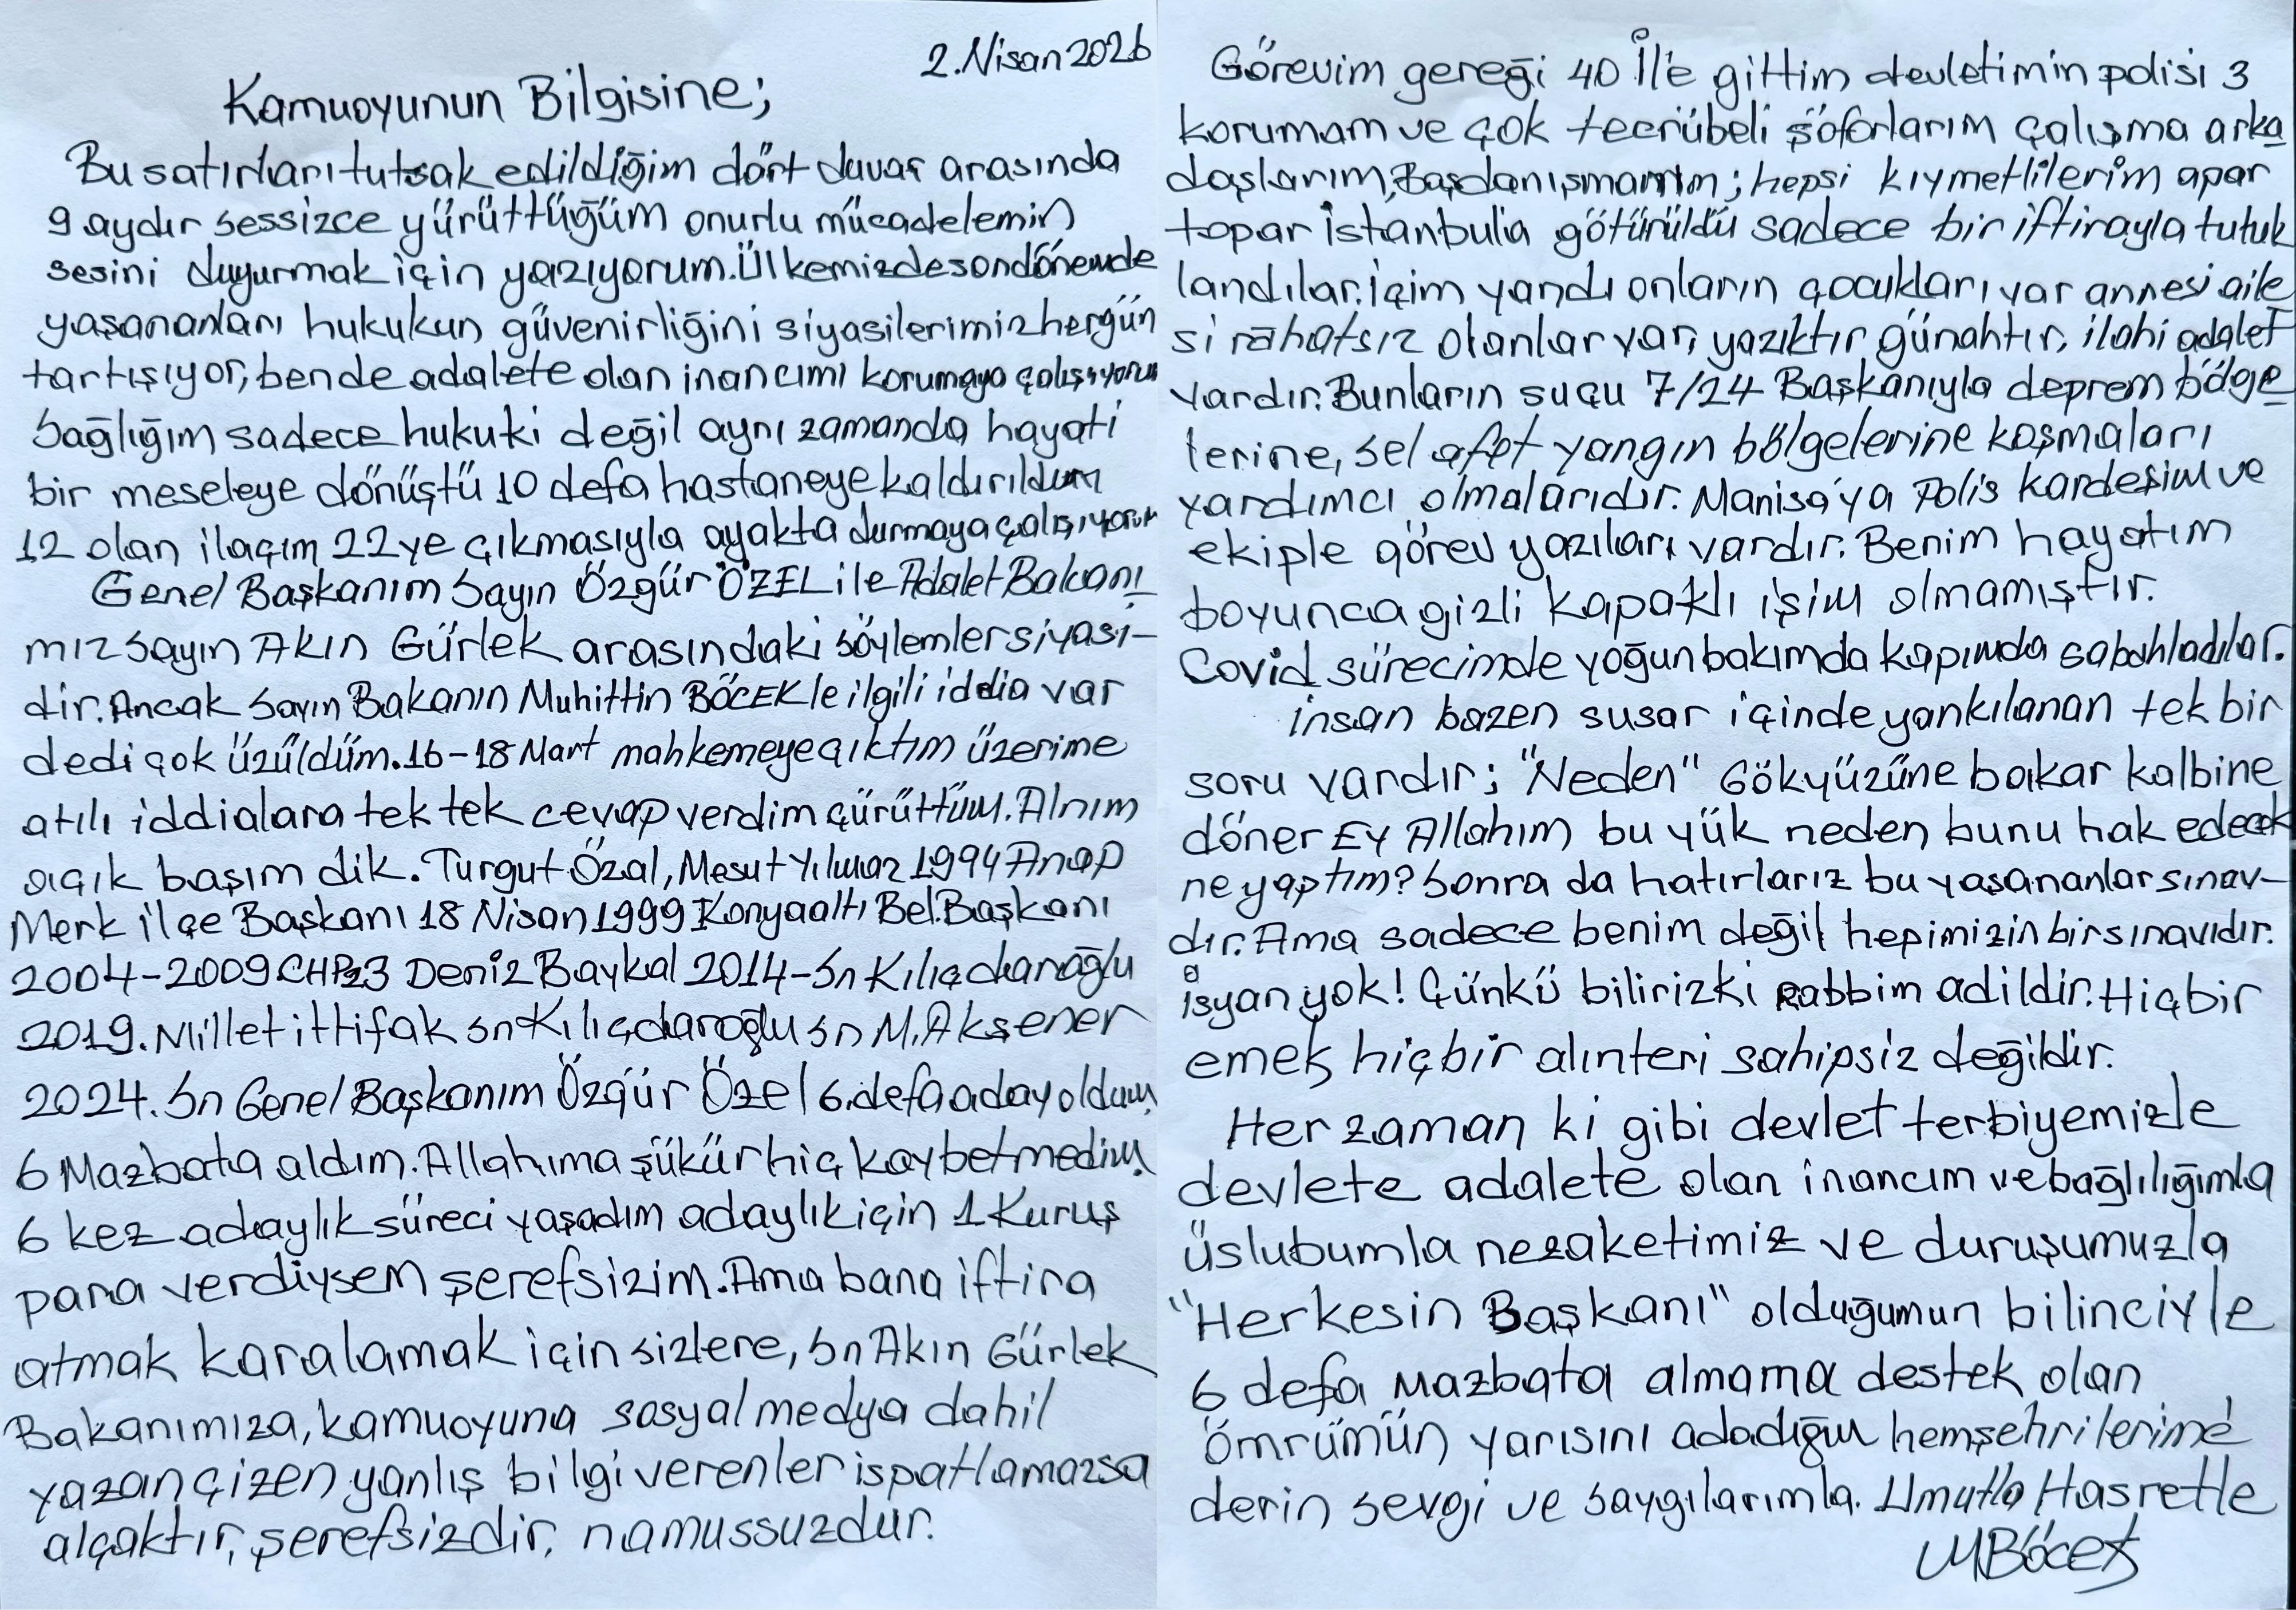 2.Nisan 2026
Kamuoyunun Bilgisine;
Bu satırları tutsak edildiğim dört duvar arasında
9 aydır sessizce yürüttüğüm onurlu mücadelemin
sesini duyurmak için yazıyorum. Ülkemizde son dönemde
yaşananları hukukun güvenirliğini siyasilerimiz hergün
tartışıyor, bende adalete olan inancımı korumaya çalışıyorum
Sağlığım sadece hukuki değil aynı zamanda hayati
bir meseleye dönüştü 10 defa hastaneye kaldırıldım
12 olan ilaçım 22ye çıkmasıyla ayakta durmaya çalışıyorum
Genel Başkanım Sayın Özgür ÖZEL ile Adalet Bakanı
mız Sayın Akın Gürlek arasındaki söylemler siyasi-
dir. Ancak Sayın Bakanın Muhittin BÖCEKle ilgili iddia var
dedi çok üzüldüm. 16-18 Mart mahkemeye çıktım üzerime
atılı iddialara tek tek cevap verdim çürüttüm. Alnım
açık başım dik. Turgut Özal, Mesut Yılmaz 1994 Anap
Merk ilçe Başkanı 18 Nisan 1999 Konyaaltı Bel. Başkanı
2004-2009 CHP Deniz Baykal 2014-Sn Kılıçdaroğlu
2019. Millet ittifak Sn Kılıçdaroğlu Sn M. Akşener
2024. Sn Genel Başkanım Özgür Özel 6.defa aday oldum
6 Mazbata aldım. Allahıma şükür hiç kaybetmedim
6 kez adaylık süreci yaşadım adaylık için 1 Kuruş
para verdiysem şerefsizim. Ama bana iftira
atmak karalamak için sizlere, Sn Akın Gürlek
Bakanımıza, kamuoyuna sosyal medya dahil
yazan çizen yanlış bilgi verenler ispatlamazsa
alçaktır, şerefsizdir, namussuzdur.
Görevim gereği 40 İl'e gittim devletimin polisi 3
korumam ve çok tecrübeli şöforlarım çalışma arka
daşlarım, Başdanışmanım; hepsi kıymetlilerim apar
topar İstanbul'a götürüldü sadece bir iftirayla tutuk
landılar. içim yandı onların çocukları var annesi aile
si rahatsız olanlar var, yazıktır günahtır, ilahi adalet
vardır. Bunların suçu 7/24 Başkanıyla deprem bölge
lerine, sel afet yangın bölgelerine koşmaları
yardımcı olmalarıdır. Manisa'ya Polis kardeşim ve
ekiple görev yazıları vardır. Benim hayatım
boyunca gizli kapaklı işim olmamıştır.
Covid sürecimde yoğun bakımda kapımda sabahladılar.
insan bazen susar içinde yankılanan tek bir
soru vardır; "Neden" Gökyüzüne bakar kalbine
döner Ey Allahım bu yük neden bunu hak edecek
ne yaptım? Sonra da hatırlarız bu yaşananlar sınav-
dır. Ama sadece benim değil hepimizin bir sınavıdır.
isyan yok! Çünkü bilirizki Rabbim adildir. Hiçbir
emek hiçbir alınteri sahipsiz değildir.
Her zaman ki gibi devlet terbiyemizle
devlete adalete olan inancım ve bağlılığımla
üslubumla nezaketimiz ve duruşumuzla
"Herkesin Başkanı" olduğumun bilinciyle
6 defa Mazbata almama destek olan
ömrümün yarısını adadığım hemşehrilerime
derin sevgi ve saygılarımla. Umutla Hasretle
MBöcek